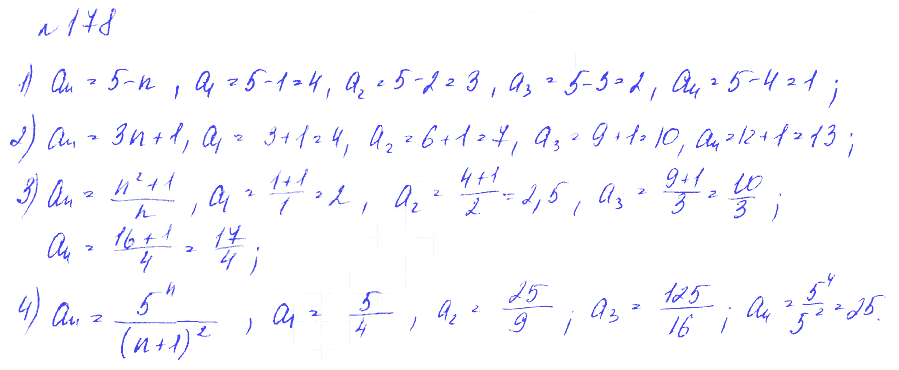 №178
1) aₙ = 5-n, a₁ = 5-1 = 4, a₂ = 5-2 = 3, a₃ = 5-3 = 2, a₄ = 5-4 = 1;
2) aₙ = 3n+1, a₁ = 3+1 = 4, a₂ = 6+1 = 7, a₃ = 9+1 = 10, a₄ = 12+1 = 13;
3) aₙ = (n²+1)/n, a₁ = (1+1)/1 = 2, a₂ = (4+1)/2 = 2,5, a₃ = (9+1)/3 = 10/3;
a₄ = (16+1)/4 = 17/4;
4) aₙ = 5ⁿ/(n+1)², a₁ = 5/4, a₂ = 25/9; a₃ = 125/16; a₄ = 5⁴/5² = 25.